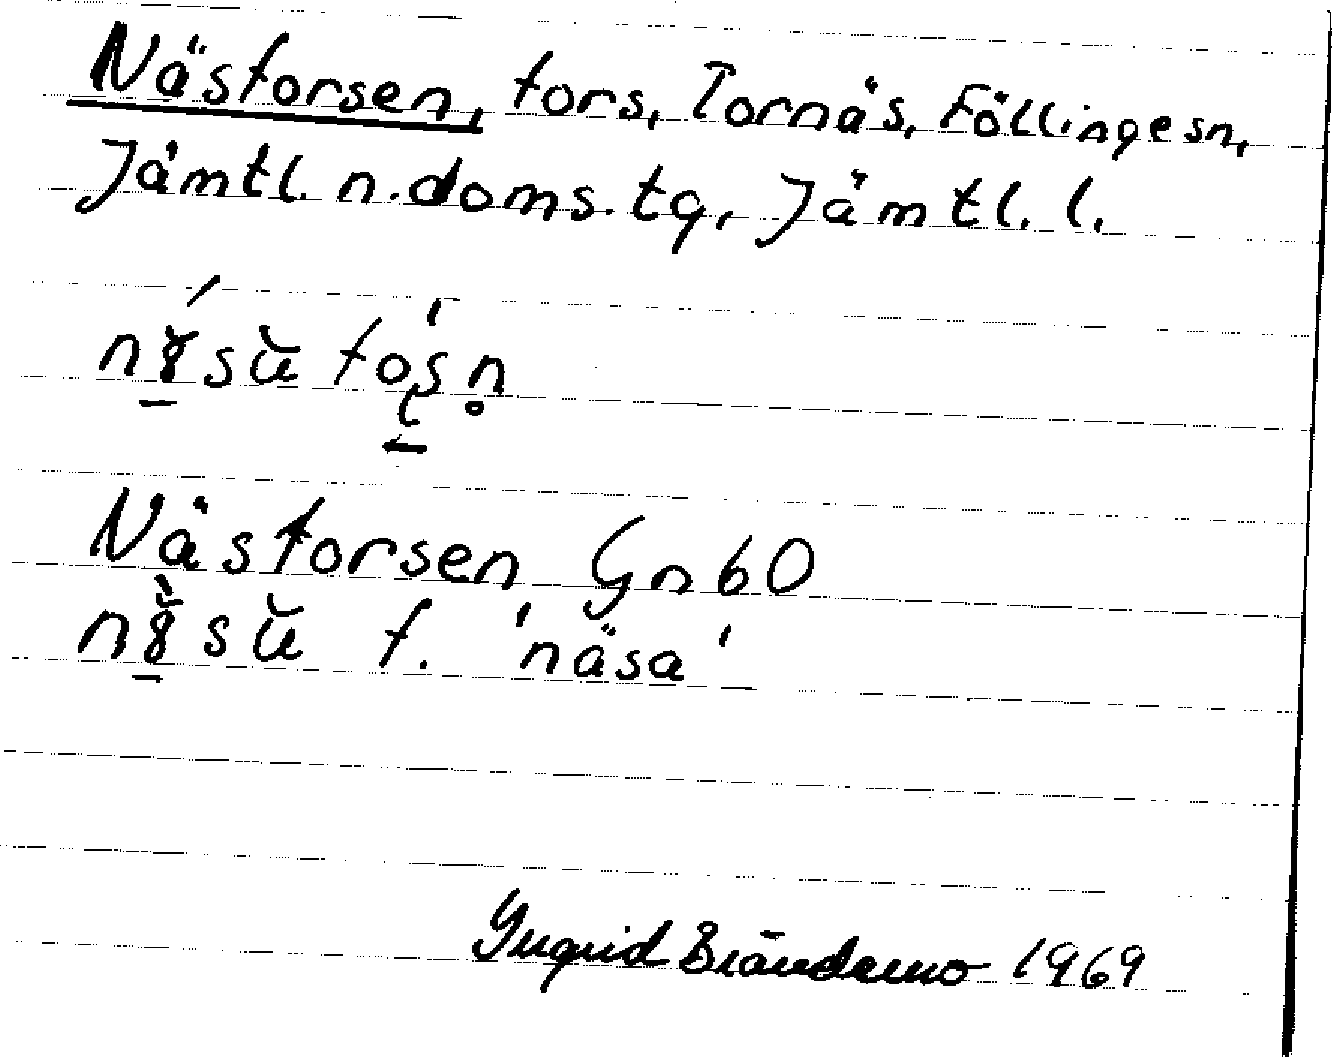 Näsforsen, fors, Tornäs, Föllinge sn,
Jämtl. n. doms. tg, Jämtl. l.
Näsforsen Gn 60
f. 'näsa'
Ingrid Brändemo 1969